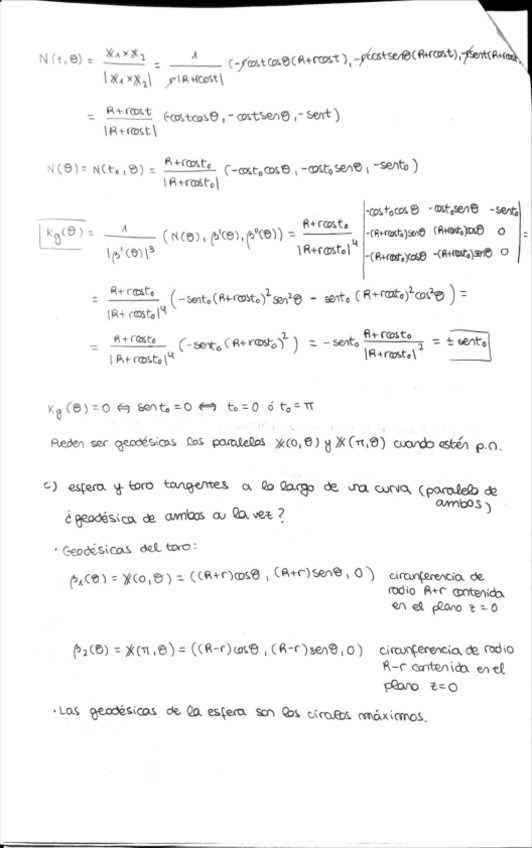 N(t,θ) = X₁×X₂ / |X₁×X₂| = 1 / r|R+rcost| (-rcostcosθ(R+rcost), -rcostsenθ(R+rcost), -rsent(R+rcost
= R+rcost / |R+rcost| (-costcosθ, -costsenθ, -sent)
N(θ) = N(t₀,θ) = R+rcost₀ / |R+rcost₀| (-cost₀cosθ, -cost₀senθ, -sent₀)
Kg(θ) = 1 / |β'(θ)|³ (N(θ), β'(θ), β''(θ)) = R+rcost₀ / |R+rcost₀|⁴ | -cost₀cosθ -cost₀senθ -sent₀ | =
| -(R+rcost₀)senθ (R+rcost₀)cosθ 0 |
| -(R+rcost₀)cosθ -(R+rcost₀)senθ 0 |
= R+rcost₀ / |R+rcost₀|⁴ (-sent₀(R+rcost₀)²sen²θ - sent₀(R+rcost₀)²cos²θ) =
= R+rcost₀ / |R+rcost₀|⁴ (-sent₀(R+rcost₀)²) = -sent₀ R+rcost₀ / |R+rcost₀|² = ± sent₀
Kg(θ)=0 ⇔ sent₀=0 ⇔ t₀=0 ó t₀=π
Pueden ser geodésicas los paralelos X(0,θ) y X(π,θ) cuando estén p.n.
c) esfera y toro tangentes a lo largo de una curva (paralelo de
ambos)
¿geodésica de ambos a la vez?
· Geodésicas del toro:
β₁(θ) = X(0,θ) = ((R+r)cosθ, (R+r)senθ, 0) circunferencia de
radio R+r contenida
en el plano z=0
β₂(θ) = X(π,θ) = ((R-r)cosθ, (R-r)senθ, 0) circunferencia de radio
R-r contenida en el
plano z=0
· Las geodésicas de la esfera son los círculos máximos.